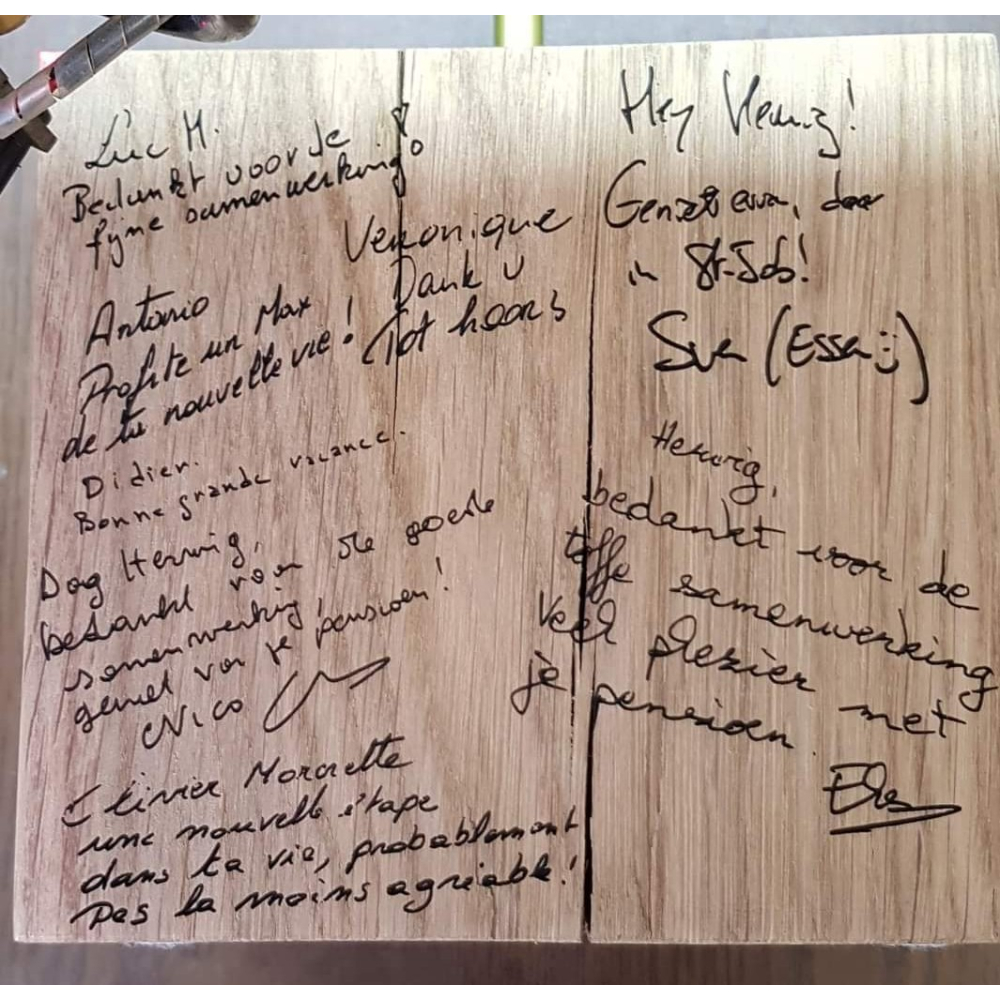 Luc M.
Bedankt voor je
fijne samenwerking!
Veronique
Dank u
Tot hoors
Antonio
Profite un Max
de ta nouvelle vie!
Didier.
Bonne grande vacance.
Dag Herwig,
bedankt voor de goede
samenwerking,
geniet van je pensioen!
Nico
Olivier
une nouvelle étape
dans ta vie, probablement
pas la moins agréable!
Hey Herwig!
Geniet ervan, daar
in St-Job!
Sva (Essa :)
Herwig,
bedankt voor de
toffe samenwerking
Veel plezier met
je pensioen.